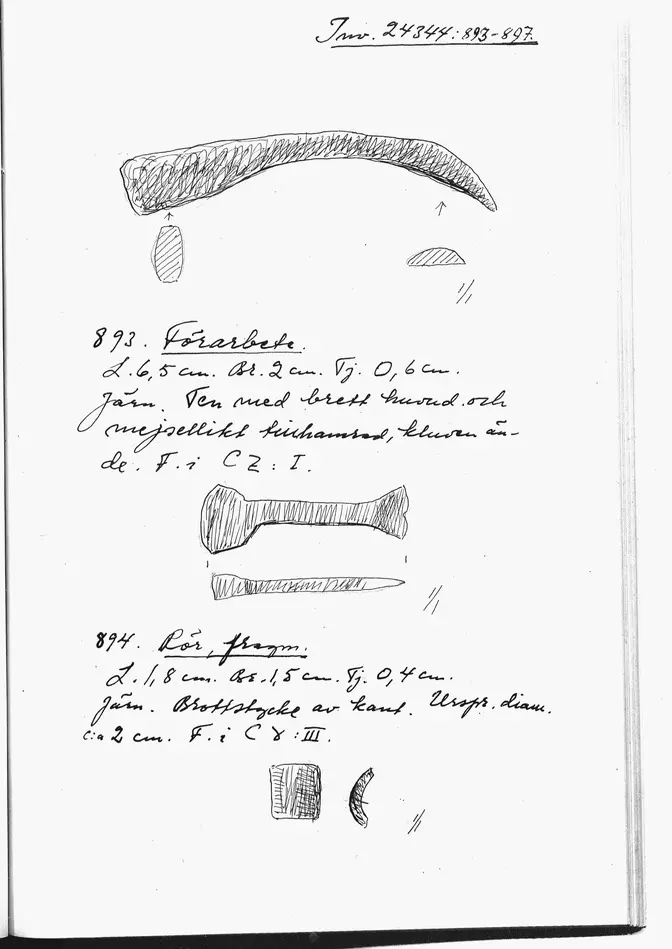 Inv. 24344:893-897.
1/1
893. Förarbete.
L. 6,5 cm. Br. 2 cm. Tj. 0,6 cm.
Järn. Ten med brett huvud och
mejsellikt tillhamrad, kluven än-
de. F. i C Z : I.
1/1
894. Rör, fragm.
L. 1,8 cm. Br. 1,5 cm. Tj. 0,4 cm.
Järn. Brottstycke av kant. Urspr. diam.
c:a 2 cm. F. i C γ : III.
1/1